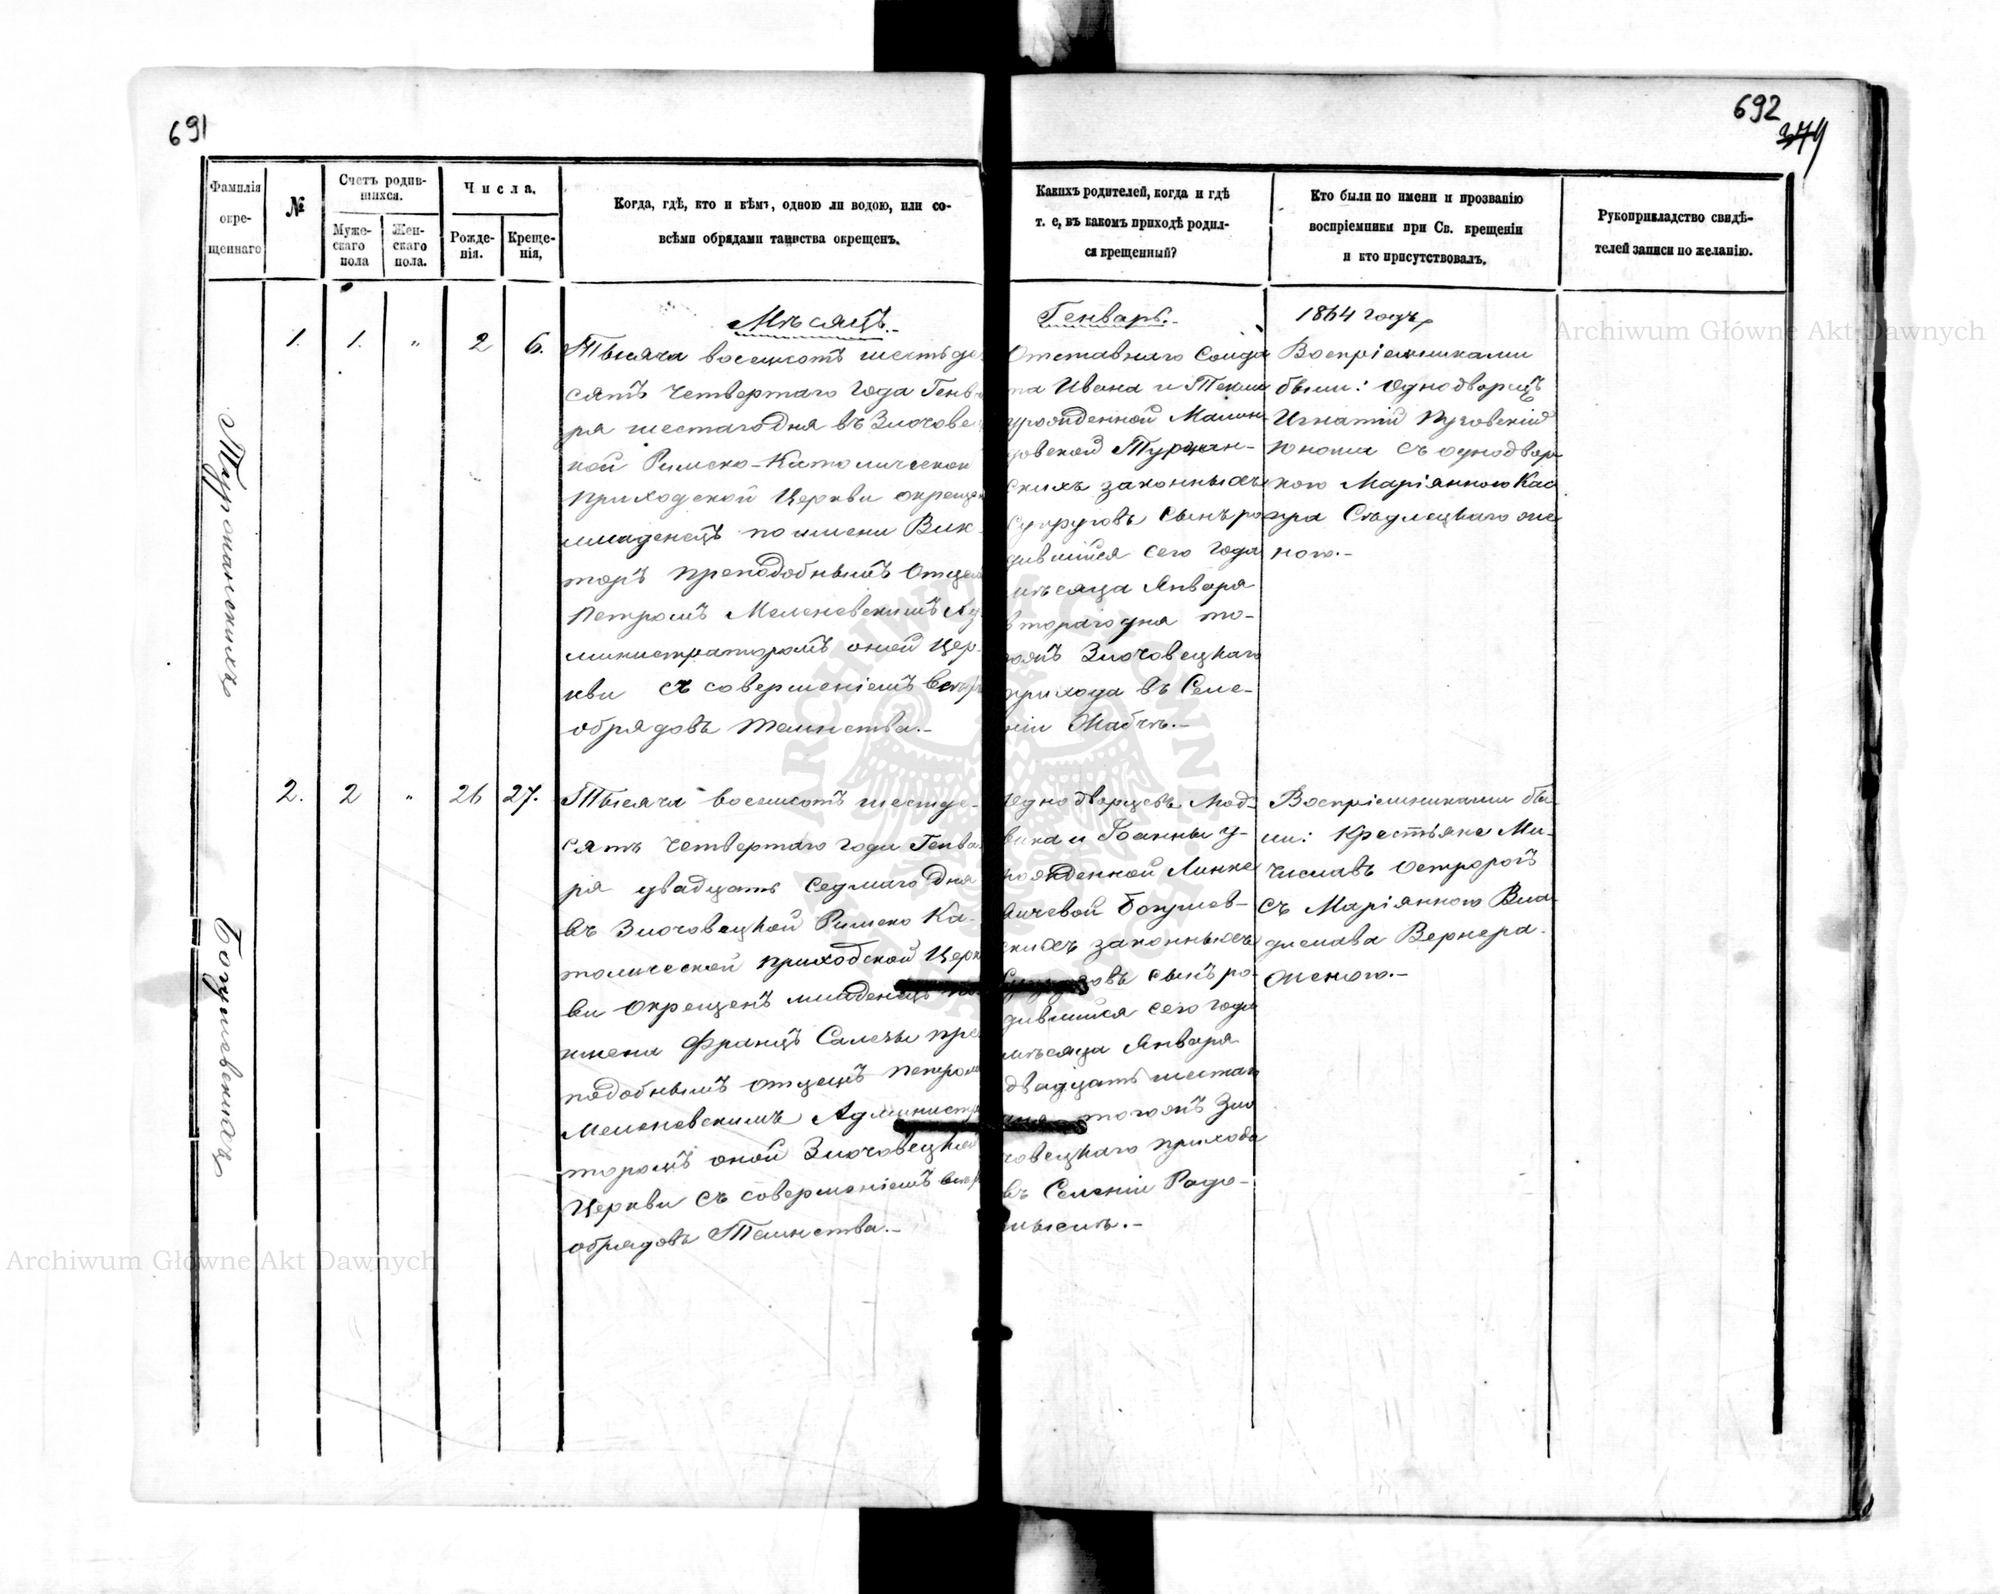 691
692
379
Фамилія
окре-
щеннаго
№
Счетъ родив-
шихся.
Муже-
скаго
пола
Жен-
скаго
пола.
Числа.
Рожде-
нія.
Креще-
нія.
Когда, гдѣ, кто и кѣмъ, одною ли водою, или со-
всѣми обрядами таинства окрещенъ.
Какихъ родителей, когда и гдѣ
т. е. въ какомъ приходѣ родил-
ся крещенный?
Кто были по имени и прозванію
воспріемники при Св. крещеніи
и кто присутствовалъ.
Рукоприкладство свидѣ-
телей записи по желанію.
Мѣсяцъ
Генварь.
1864 годъ
1. 1. " 2 6.
Тысяча восемсотъ шестьде
сятъ четвертаго года Генва
ря шестаго дня въ Злочовец
кой Римско-Католической
приходской Церкви окрещен
младенецъ по имени Вик-
торъ преподобнымъ Отцем
Петромъ Меленевскимъ Ад
министраторомъ оной Цер-
кви съ совершеніемъ всѣх
обрядовъ таинства.-
Отставнаго Солда
та Ивана и Теклии
урожденной Малин
овской Туркан-
скихъ законныхъ
Супруговъ сынъ ро
дившійся сего года
мѣсяца Января
втораго дня то-
гожъ Злочовецкаго
прихода въ Селе-
ніи Жабчѣ.-
Воспріемниками
были: Однодворецъ
Игнатій Пуговскій
юноша съ однодвор
кою Маріянною Кас
пра Сѣдлецкаго же
ною.-
2. 2 " 26 27.
Тысяча восемсотъ шестде-
сятъ четвертаго года Генва
ря двадцать седмаго дня
въ Злочовецкой Римско Ка-
толической приходской Церк
ви окрещенъ младенецъ по
имени Францъ Салезы пре
подобнымъ отцемъ Петромъ
Меленевскимъ Администра
торомъ оной Злочовецкой
Церкви съ совершеніемъ всѣх
обрядовъ Таинства.-
Однодворцевъ Люд-
вика и Іоанны у-
рожденной Линке
вичевой Богушев-
скихъ законныхъ
Супруговъ сынъ ро-
дившійся сего года
мѣсяца Января
двадцать шестаго
дня тогожъ Зло
човецкаго прихода
въ Селеніи Радо-
мыслѣ.-
Воспріемниками бы-
ли: Крестьяне Ми-
Остророгъ
съ Маріянною Вла-
дислава Вернера
женою.-
Богушевскихъ
Archiwum Główne Akt Dawnych
Archiwum Główne Akt Dawnych
ARCHIWUM GŁÓWNE